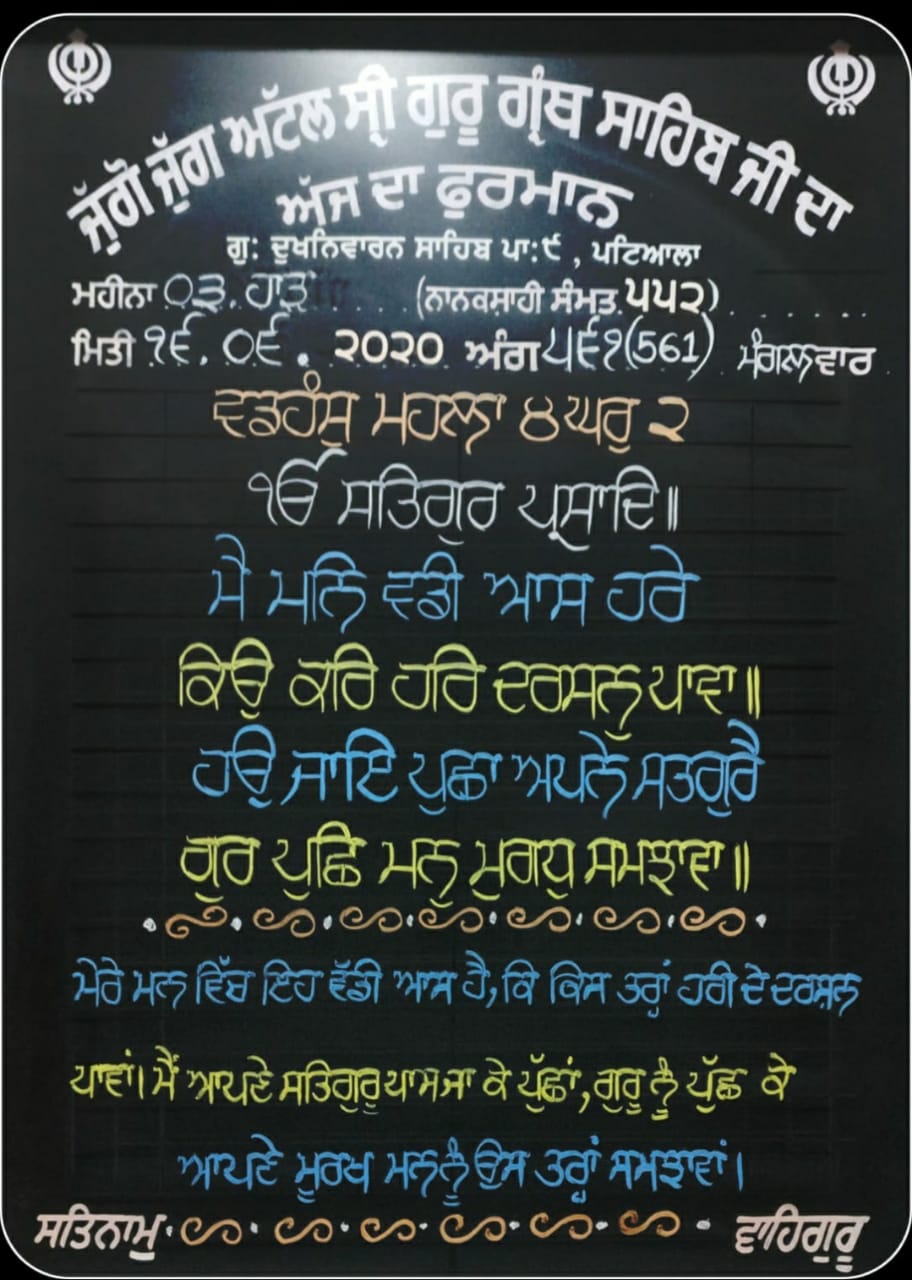 ਜੁੱਗੋ ਜੁੱਗ ਅੱਟਲ ਸ੍ਰੀ ਗੁਰੂ ਗ੍ਰੰਥ ਸਾਹਿਬ ਜੀ ਦਾ
ਅੱਜ ਦਾ ਫੁਰਮਾਨ
ਗੁ: ਦੂਖਨਿਵਾਰਨ ਸਾਹਿਬ ਪਾ:੯ , ਪਟਿਆਲਾ
ਮਹੀਨਾ ੦੩. ਹਾੜ . . . . (ਨਾਨਕਸ਼ਾਹੀ ਸੰਮਤ ੫੫੨) . . . . . .
ਮਿਤੀ ੧੬. ੦੬. ੨੦੨੦ ਅੰਗ ੫੬੧(561) ਮੰਗਲਵਾਰ
ਵਡਹੰਸੁ ਮਹਲਾ ੪ ਘਰੁ ੨
ੴ ਸਤਿਗੁਰ ਪ੍ਰਸਾਦਿ॥
ਮੈ ਮਨਿ ਵਡੀ ਆਸ ਹਰੇ
ਕਿਉ ਕਰਿ ਹਰਿ ਦਰਸਨੁ ਪਾਵਾ॥
ਹਉ ਜਾਇ ਪੁਛਾ ਅਪਨੇ ਸਤਗੁਰੈ
ਗੁਰ ਪੁਛਿ ਮਨੁ ਮੁਗਧੁ ਸਮਝਾਵਾ॥
ਮੇਰੇ ਮਨ ਵਿੱਚ ਇਹ ਵੱਡੀ ਆਸ ਹੈ, ਕਿ ਕਿਸ ਤਰ੍ਹਾਂ ਹਰੀ ਦੇ ਦਰਸ਼ਨ
ਪਾਵਾਂ। ਮੈਂ ਆਪਣੇ ਸਤਿਗੁਰੂ ਪਾਸ ਜਾ ਕੇ ਪੁੱਛਾਂ, ਗੁਰੂ ਨੂੰ ਪੁੱਛ ਕੇ
ਆਪਣੇ ਮੂਰਖ ਮਨ ਨੂੰ ਉਸ ਤਰ੍ਹਾਂ ਸਮਝਾਵਾਂ।
ਸਤਿਨਾਮੁ ਵਾਹਿਗੁਰੂ